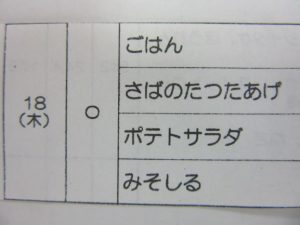 18
(木)
○
ごはん
さばのたつたあげ
ポテトサラダ
みそしる